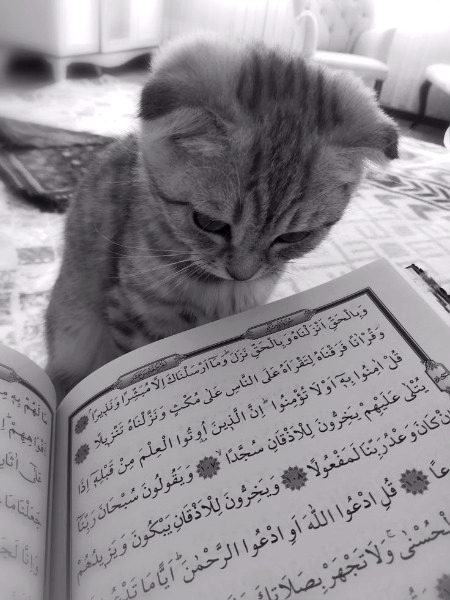 وَبِالْحَقِّ اَنْزَلْنَاهُ وَبِالْحَقِّ نَزَلَ وَمَٓا اَرْسَلْنَاكَ اِلَّا مُبَشِّرًا وَنَذِيرًا
وَقُرْاٰنًا فَرَقْنَاهُ لِتَقْرَاَهُ عَلَى النَّاسِ عَلٰى مُكْثٍ وَنَزَّلْنَاهُ تَنْزِيلًا
قُلْ اٰمِنُوا بِهٖٓ اَوْ لَا تُؤْمِنُوا اِنَّ الَّذِينَ اُوتُوا الْعِلْمَ مِنْ قَبْلِهٖٓ اِذَا
يُتْلٰى عَلَيْهِمْ يَخِرُّونَ لِلْاَذْقَانِ سُجَّدًا ١٠٧ وَيَقُولُونَ سُبْحَانَ رَبِّنَٓا
كَانَ وَعْدُ رَبِّنَا لَمَفْعُولًا ١٠٨ وَيَخِرُّونَ لِلْاَذْقَانِ يَبْكُونَ وَيَزِيدُهُمْ
١٠٩ قُلِ ادْعُوا اللّٰهَ اَوِ ادْعُوا الرَّحْمٰنَ اَيًّا مَا
وَلَا تَجْهَرْ بِصَلَاتِكَ